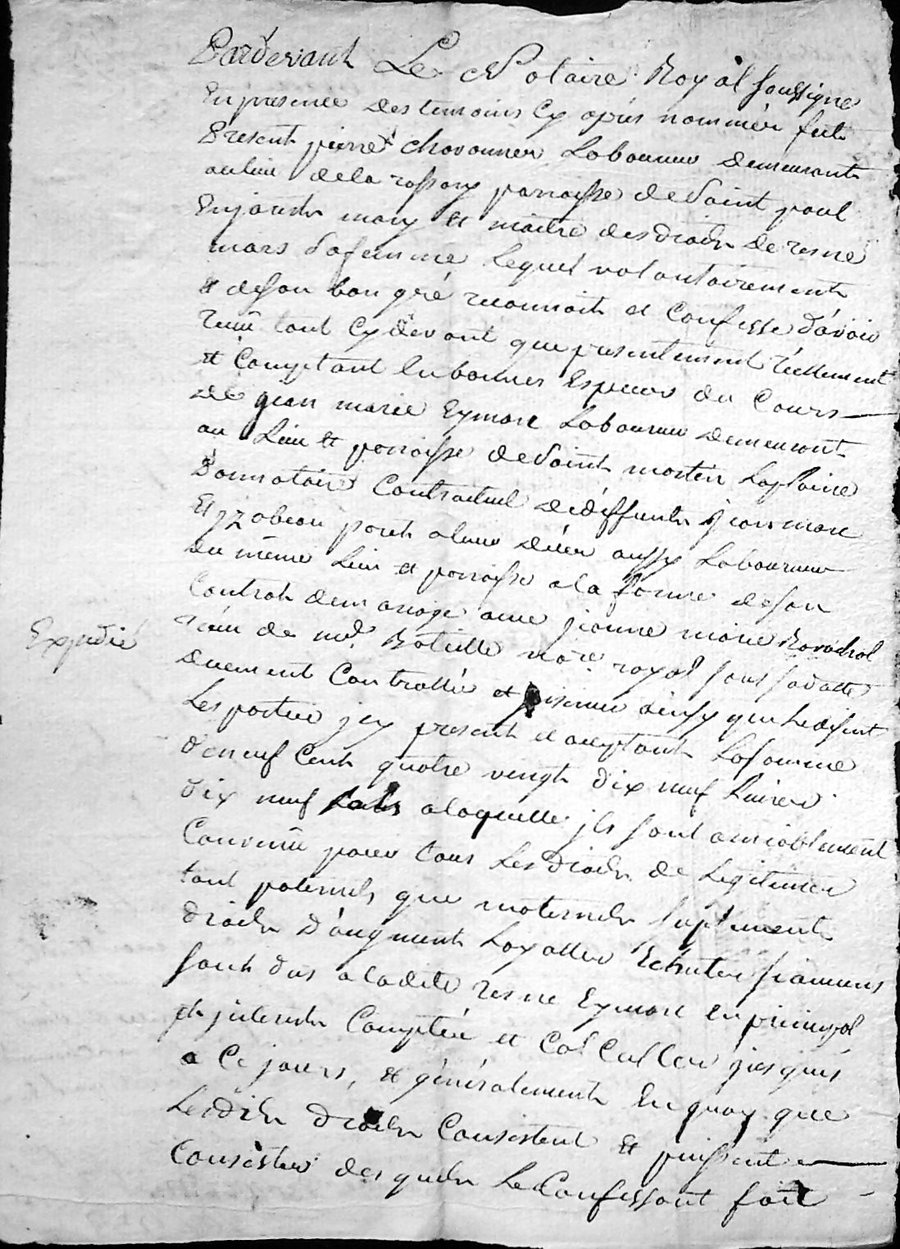 Pardevant Le Notaire Royal soussigné
En presence des temoins Cy après nommés fut
Present pierre chavanner Laboureur demeurant
au lieu de la paroisse de Saint paul
En jarest mary et maitre des droits de
mars Safemme Lequel volontairement
et deson bon gré reconnoit et Confesse d'avoir
Reçu tant Cy devant que presentement réellement
et Comptant En bonnes Especes du Cours
de jean marie Eymare Laboureur demeurant
au Lieu et paroisse de Saint martin Laplaine
Donnataire Contractuel de deffunts jean mare
Et yzabeau laboureur
du même Lieu et paroisse a la forme de son
Contrat de mariage avec jeanne marie
Expedié
reçu de me Bataille nore royal sous sa datte
duement Controllé et ainsy que Le disent
Les parties jcy present et acceptant La somme
de neuf Cent quatre vingt dix neuf Livres
dix neuf sols a laquelle jls sont amiablement
Convenu pour tous Les droits de Legitimes
tant paternels que maternels Suplement
droits D'augment Echutes
sont dus a ladite Eymare En principal
et jnterets Comptés et Calcullés jusques
a Ce jours, et généralement En quoy que
Lesdits droits Consistent et puissent
Consister desquels Le Confessant fait